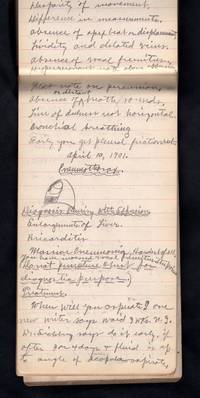 Disparity of movement.
Difference in measurements.
absence of apex beat or displacement
lividity and dilated veins.
absence of vocal fremitus
Flat note on percussion,
absence of breath sounds.
line of dulness not horizontal.
bronchial breathing
Early you get pleural friction
April 10, 1901.
Pneumothorax.
Diagnosis Pleurisy with Effusion
Enlargement of Liver.
Pericarditis
Massive Pneumonia.
You have increased vocal fremitus
Do not puncture chest for
diagnostic purpose
Treatment.
When will you aspirate? one
new writer says wait 3 wks.
Dr. says do it early, if
after 4 days & fluid is up
to angle of scapula aspirate,